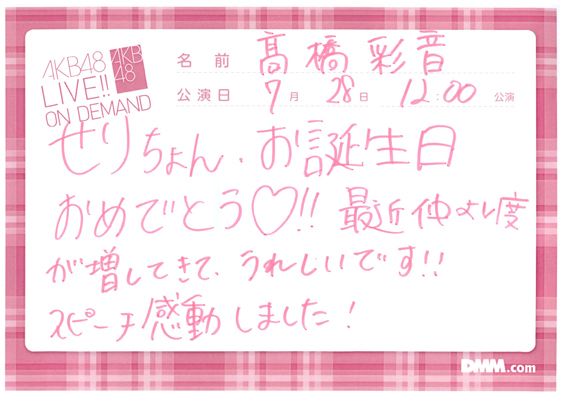 AKB48
LIVE!!
ON DEMAND
AKB
48
名前 髙橋彩音
公演日 7月28日 12:00 公演
せりちょん、お誕生日
おめでとう♡!! 最近仲よし度
が増してきて、うれしいです!!
スピーチ感動しました!
DMM.com